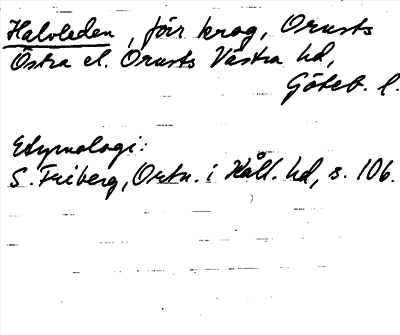 Halvleden, förr krog, Orusts
Östra el. Orusts Västra hd,
Göteb. l.
Etymologi:
S. Friberg, Ortn. i Kåll. hd, s. 106.